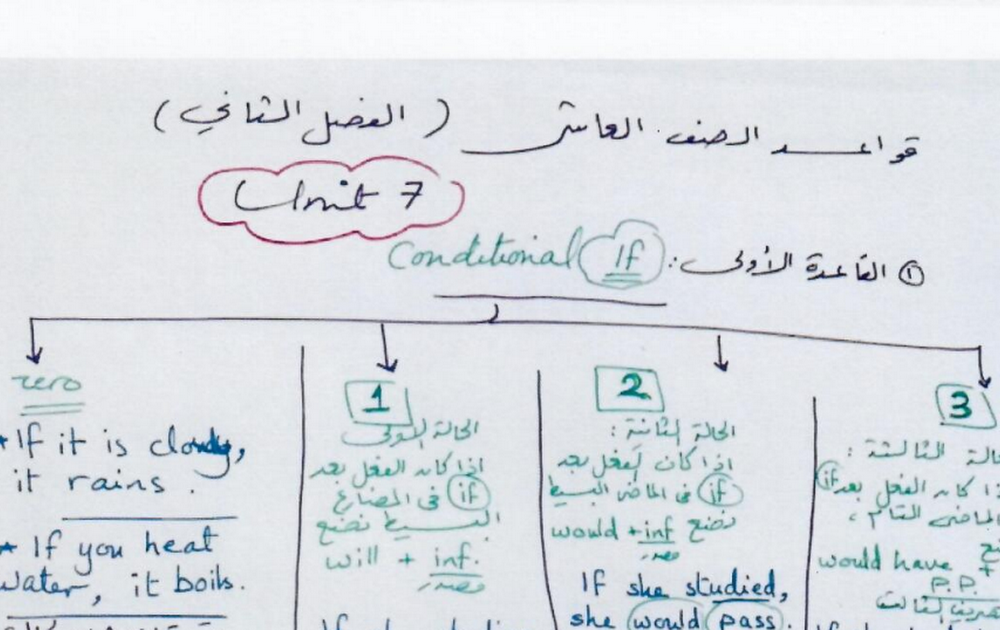 قواعد الصف العاشر ( الفصل الثاني )
Unit 7
① القاعدة الأولى: If Conditional
zero
* If it is cloudy,
it rains.
* If you heat
water, it boils.
1
الحالة الأولى
اذا كان الفعل بعد
if في المضارع
البسيط نضع
will + inf.
مصدر
2
الحالة الثانية :
اذا كان الفعل بعد
if في الماضي البسيط
نضع would + inf
مصدر
If she studied,
she would pass.
3
الحالة الثالثة :
اذا كان الفعل بعد if
الماضي التام ،
would have +
P.P.
التصريف الثالث